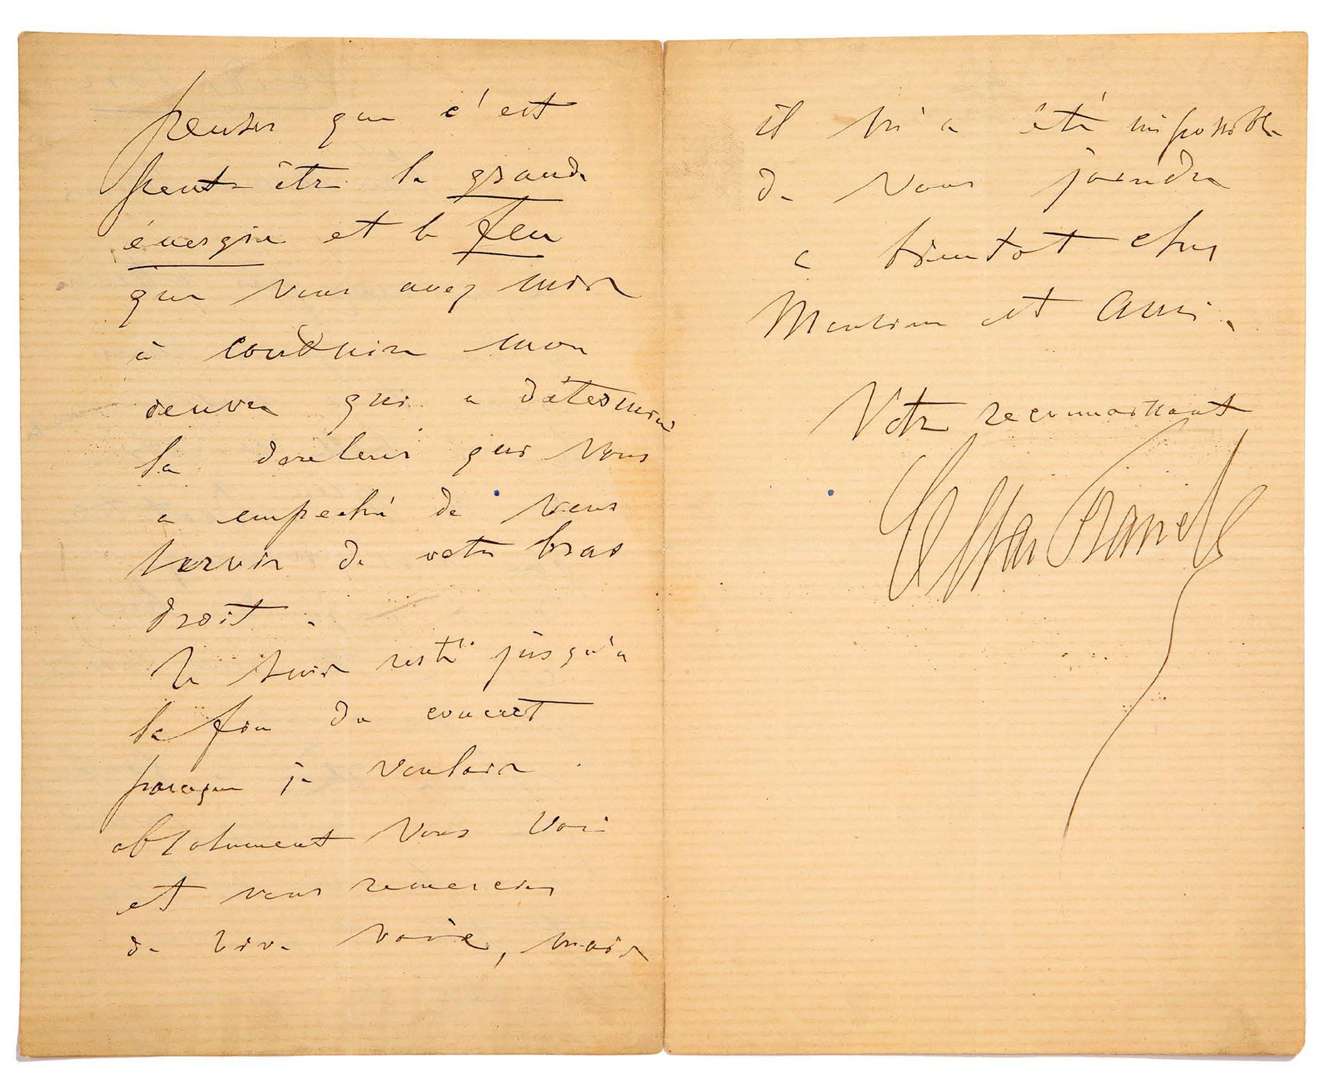 penser que c'est
peut être la grande
énergie et le feu
que vous avez mis
à conduire mon
œuvre qui a déterminé
la douleur qui vous
a empêché de vous
servir de votre bras
droit.
Je suis resté jusqu'à
la fin du concert
parceque je voulais
absolument vous voir
et vous remercier
de vive voix, mais
il m'a été impossible
de vous joindre
a bientot cher
Monsieur et Ami.
Votre reconnaissant
César Franck